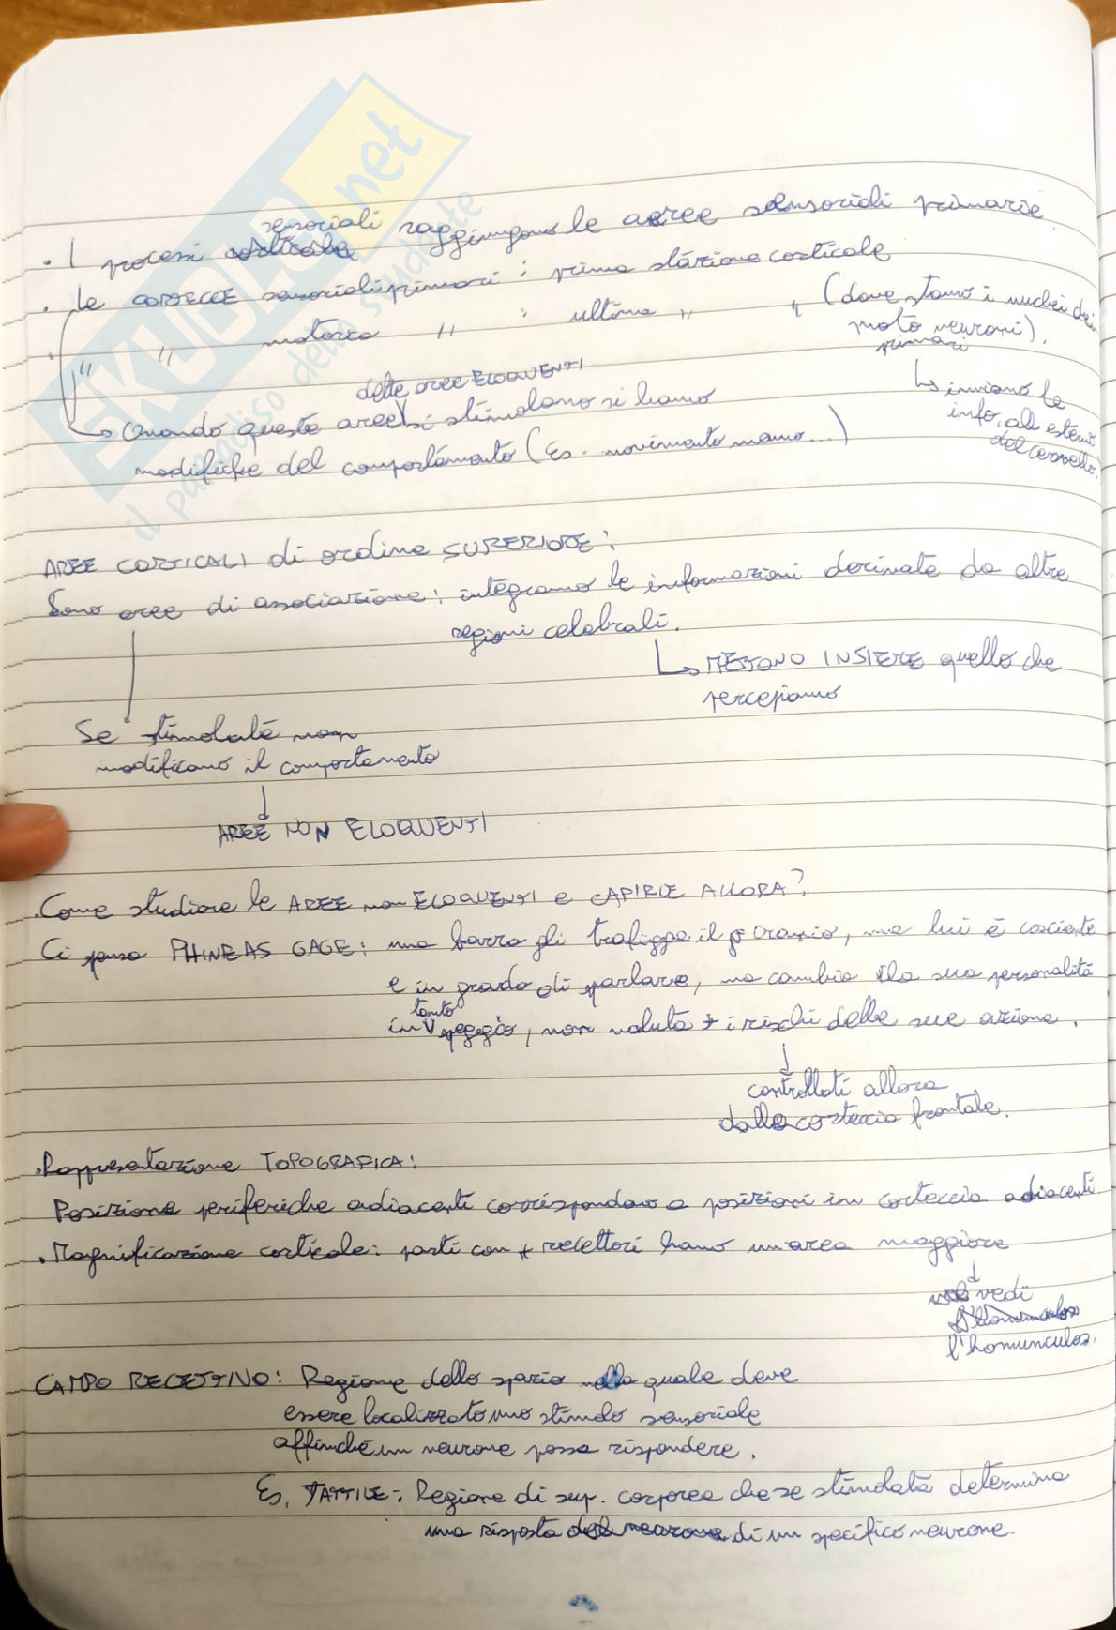 SKUOLA.net
il paradiso dello studente
sensoriali
. I processi corticale raggiungono le aeree sensoriali primarie
. le CORTECCE sensoriali primari : prima stazione corticale
" " motorea " : ultima " " (dove stanno i nuclei dei
moto neuroni).
primari
↳ inviano le
info. all'esterno
del cervello.
dette aree ELOQUENTI
↳ Quando queste aree si stimolano si hanno
modifiche del comportamento (Es. movimento mano...)
AREE CORTICALI di ordine SUPERIORE:
Sono aree di associazione: integrano le informazioni derivate da altre
regioni celebrali.
↳ METTONO INSIEME quello che
percepiamo
Se stimolate non
modificano il comportamento
↓
AREE NON ELOQUENTI
.Come studiare le AREE non ELOQUENTI e CAPIRLE ALLORA?
Ci pensa PHINEAS GAGE: una barra gli trafigge il cranio, ma lui è cosciente
e in grado di parlare, ma cambia la sua personalità
tanto
in peggio, non valuta + i rischi delle sue azione.
↓
controllati allora
dalla corteccia frontale.
.Rappresentazione TOPOGRAFICA:
Posizione periferiche adiacenti corrispondono a posizioni in corteccia adiacenti
.Magnificazione corticale: parti con + recettori hanno un'area maggiore
↓
vedi
l'homunculos.
CAMPO RECETTIVO: Regione dello spazio nella quale deve
essere localizzato uno stimolo sensoriale
affinché un neurone possa rispondere.
Es. TATTILE: Regione di sup. corporea che se stimolata determina
una risposta del neurone di un specifico neurone.